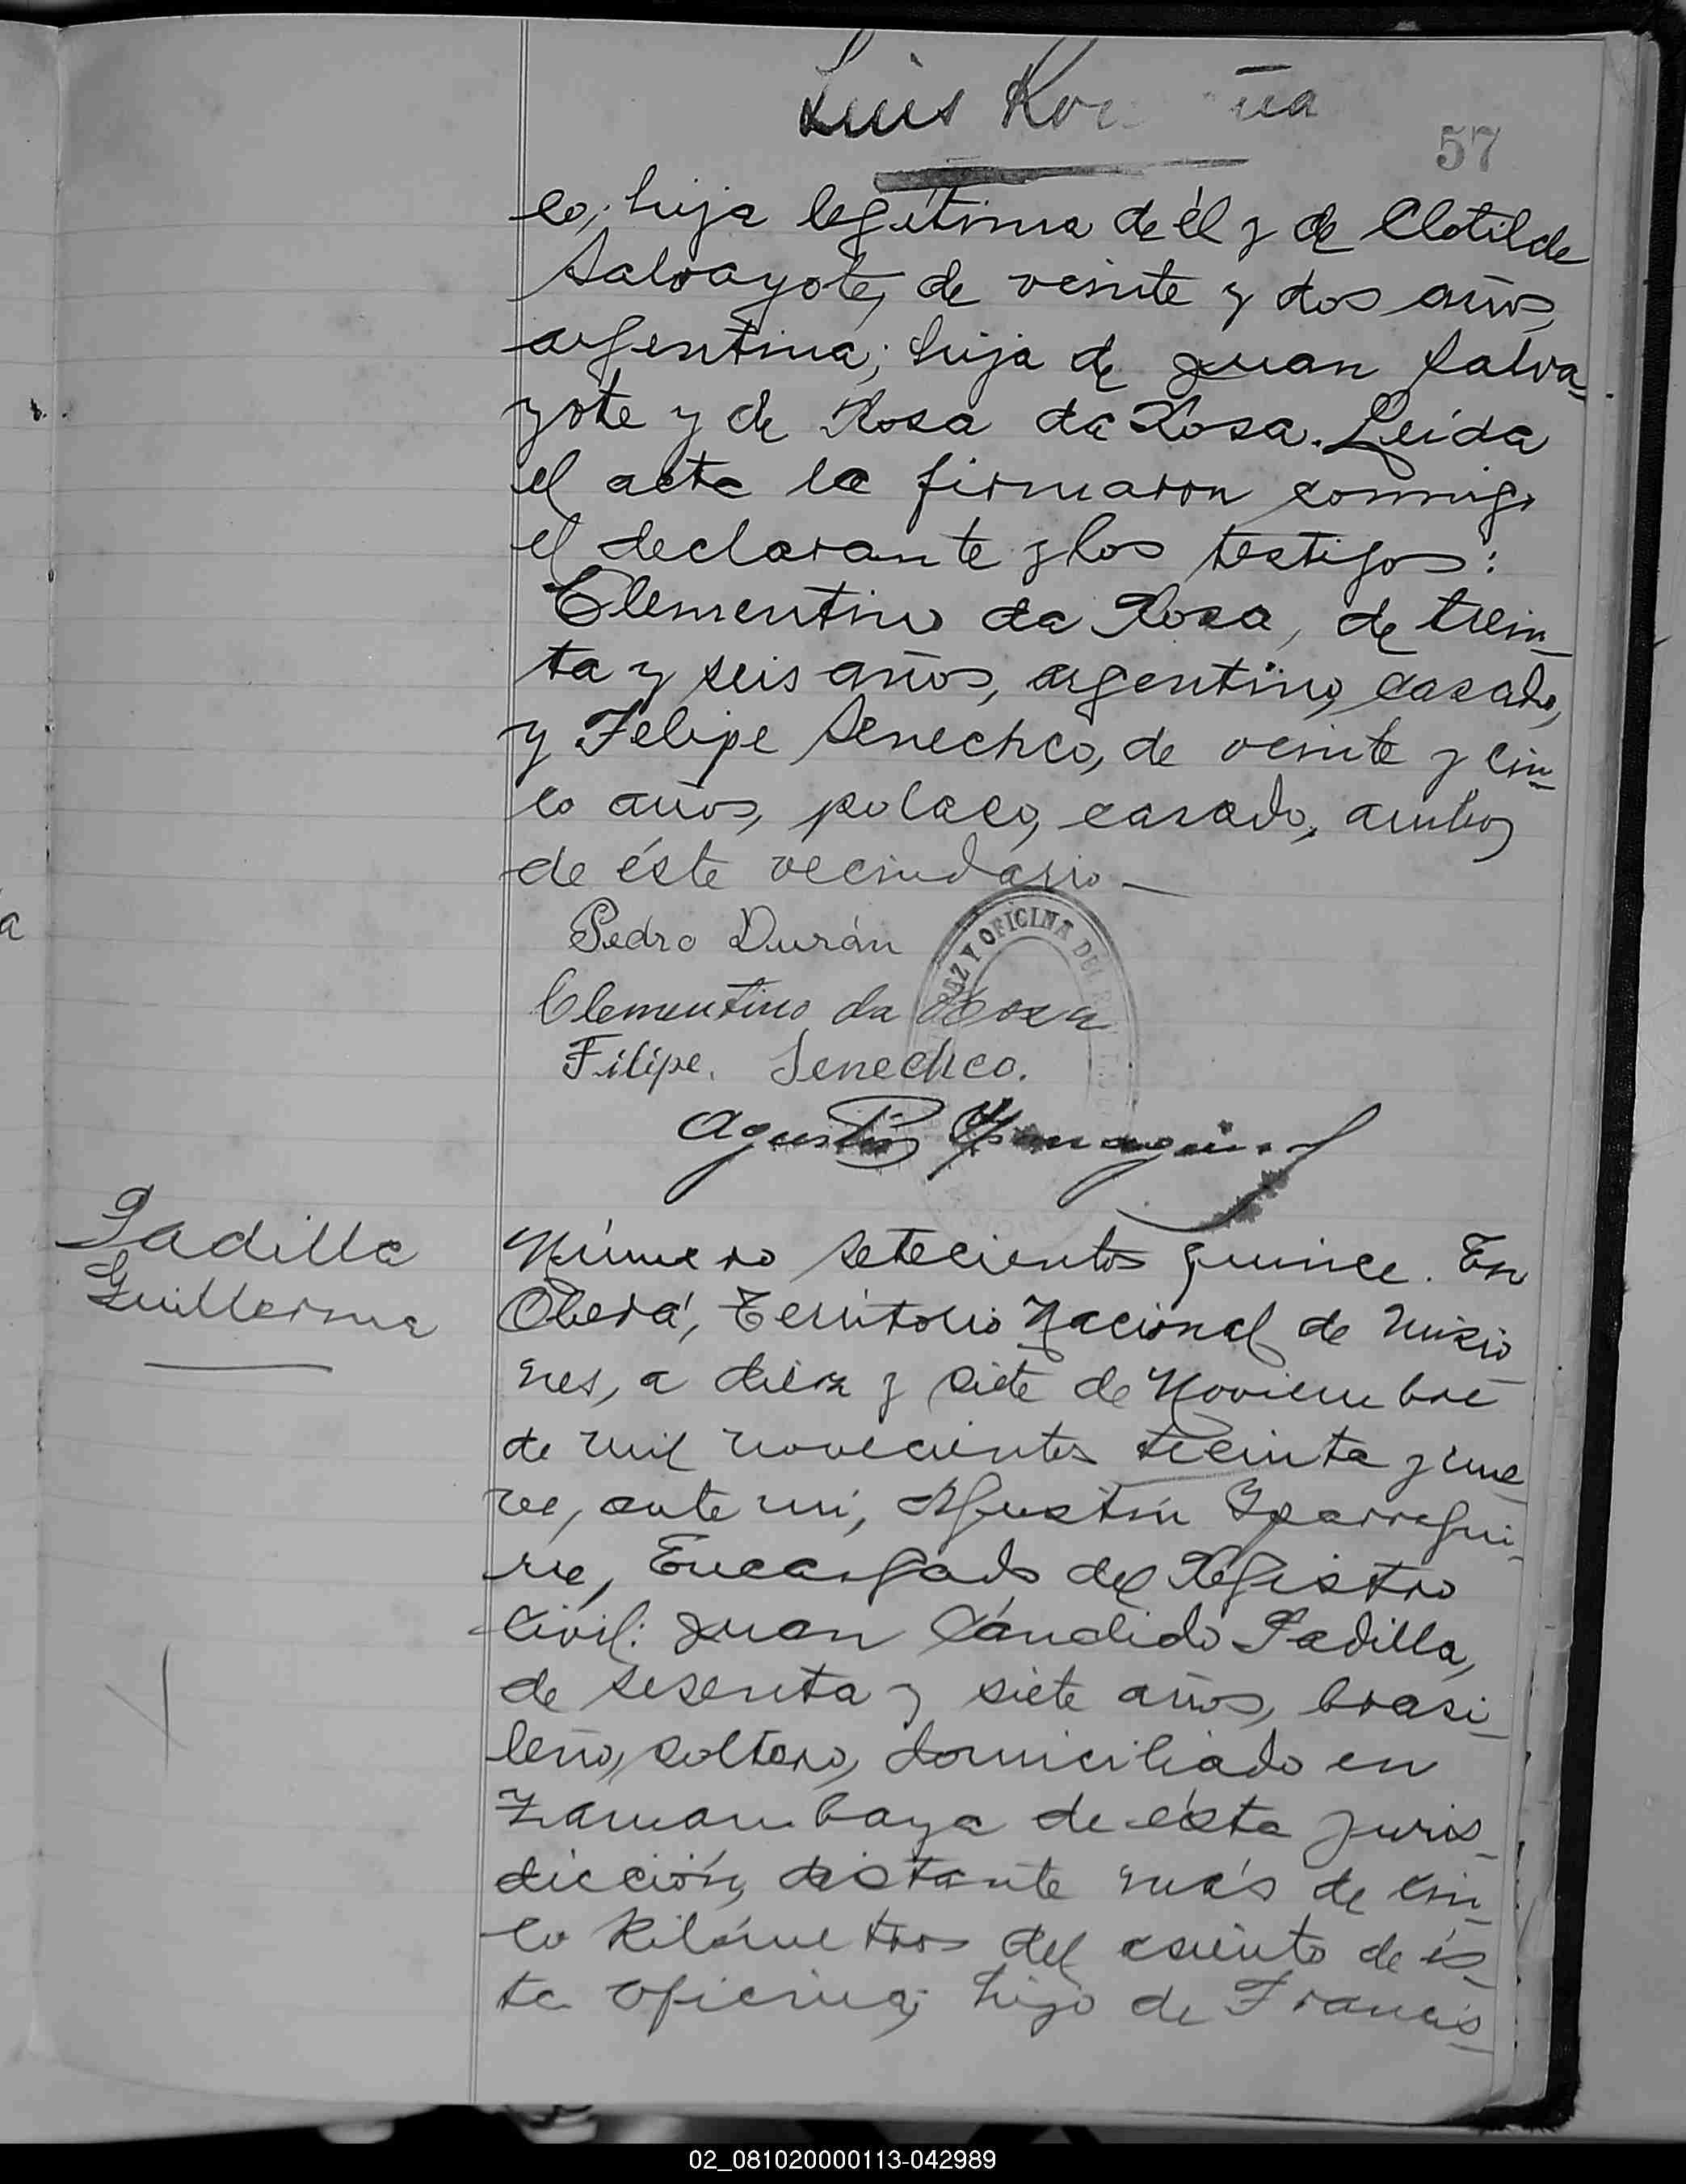 Luis
57
co; hija legítima de él y de Clotilde
Salvayote, de veinte y dos años,
argentina; hija de Juan Salva-
yote y de Rosa da Rosa. Leída
el acta la firmaron conmigo
el declarante y los testigos:
Clementino da Rosa, de trein-
ta y seis años, argentino, casado,
y Felipe Senechco, de veinte y cin-
co años, polaco, casado, ambos
de éste vecindario —
Pedro Durán
Clementino da Rosa
Filipe. Senechco.
Agustín
OFICINA
Padilla
Guillerma
Número setecientos quince. En
Oberá, Territorio Nacional de Misio
nes, a diez y siete de Noviembre
de mil novecientos treinta y nue
ve, ante mi, Agustín Yparregui-
rre, Encargado del Registro
Civil: Juan Cándido Padilla,
de sesenta y siete años, brasi-
leño, soltero, domiciliado en
de ésta juris-
dicción, distante más de cin-
co Kilómetros del asiento de és-
ta oficina; hijo de Francis-
02_081020000113-042989